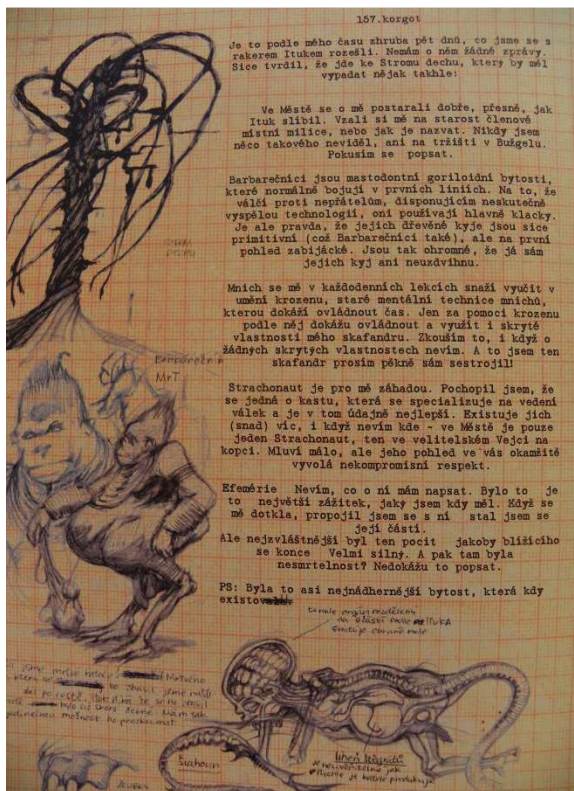 157.korgot
Je to podle mého času zhruba pět dnů, co jsme se s
rakerem Itukem rozešli. Nemám o něm žádné zprávy.
Sice tvrdil, že jde ke Stromu dechu, který by měl
vypadat nějak takhle:
Ve Městě se o mě postarali dobře, přesně, jak
Ituk slíbil. Vzali si mě na starost členové
místní milice, nebo jak je nazvat. Nikdy jsem
něco takového neviděl, ani na tržišti v Bužgelu.
Pokusím se popsat.
Barbarečníci jsou mastodontní goriloidní bytosti,
které normálně bojují v prvních liniích. Na to, že
válčí proti nepřátelům, disponujícím neskutečně
vyspělou technologií, oni používají hlavně klacky.
Je ale pravda, že jejich dřevěné kyje jsou sice
primitivní (což Barbarečníci také), ale na první
pohled zabijácké. Jsou tak ohromné, že já sám
jejich kyj ani neuzdvihnu.
Mnich se mě v každodenních lekcích snaží vyučit v
umění krozenu, staré mentální technice mnichů,
kterou dokáží ovládnout čas. Jen za pomoci krozenu
podle něj dokážu ovládnout a využít i skryté
vlastnosti mého skafandru. Zkouším to, i když o
žádných skrytých vlastnostech nevím. A to jsem ten
skafandr prosím pěkně sám sestrojil!
Strachonaut je pro mě záhadou. Pochopil jsem, že
se jedná o kastu, která se specializuje na vedení
válek a je v tom údajně nejlepší. Existuje jich
(snad) víc, i když nevím kde - ve Městě je pouze
jeden Strachonaut, ten ve velitelském Vejci na
kopci. Mluví málo, ale jeho pohled ve vás okamžitě
vyvolá nekompromisní respekt.
Efemérie Nevím, co o ní mám napsat. Bylo to je
to největší zážitek, jaký jsem kdy měl. Když se
mě dotkla, propojil jsem se s ní stal jsem se
její částí.
Ale nejzvláštnější byl ten pocit jakoby blížícího
se konce Velmi silný. A pak tam byla
nesmrtelnost? Nedokážu to popsat.
PS: Byla to asi nejnádhernější bytost, která kdy
existo
Barbarečník
Mr T
tenhle orgán